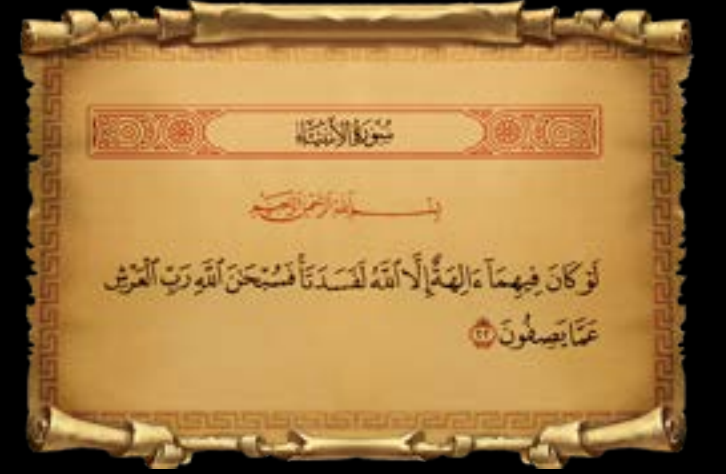 سُورَةُ الأَنبِيَاءِ
بِسْمِ ٱللَّهِ ٱلرَّحْمَٰنِ ٱلرَّحِيمِ
لَوْ كَانَ فِيهِمَآ ءَالِهَةٌ إِلَّا ٱللَّهُ لَفَسَدَتَا فَسُبْحَٰنَ ٱللَّهِ رَبِّ ٱلْعَرْشِ
عَمَّا يَصِفُونَ ٢٢